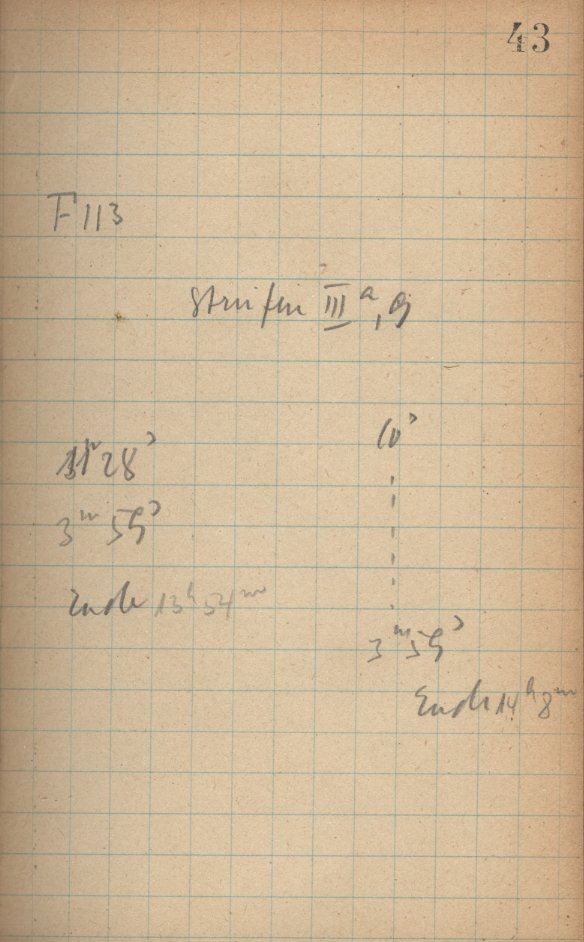 43
F 113
Streifen III a,
10ˢ
28ˢ
3ᵐ 59ˢ
Ende 13ʰ 54ᵐ
3ᵐ 59ˢ
Ende 14ʰ 8ᵐ